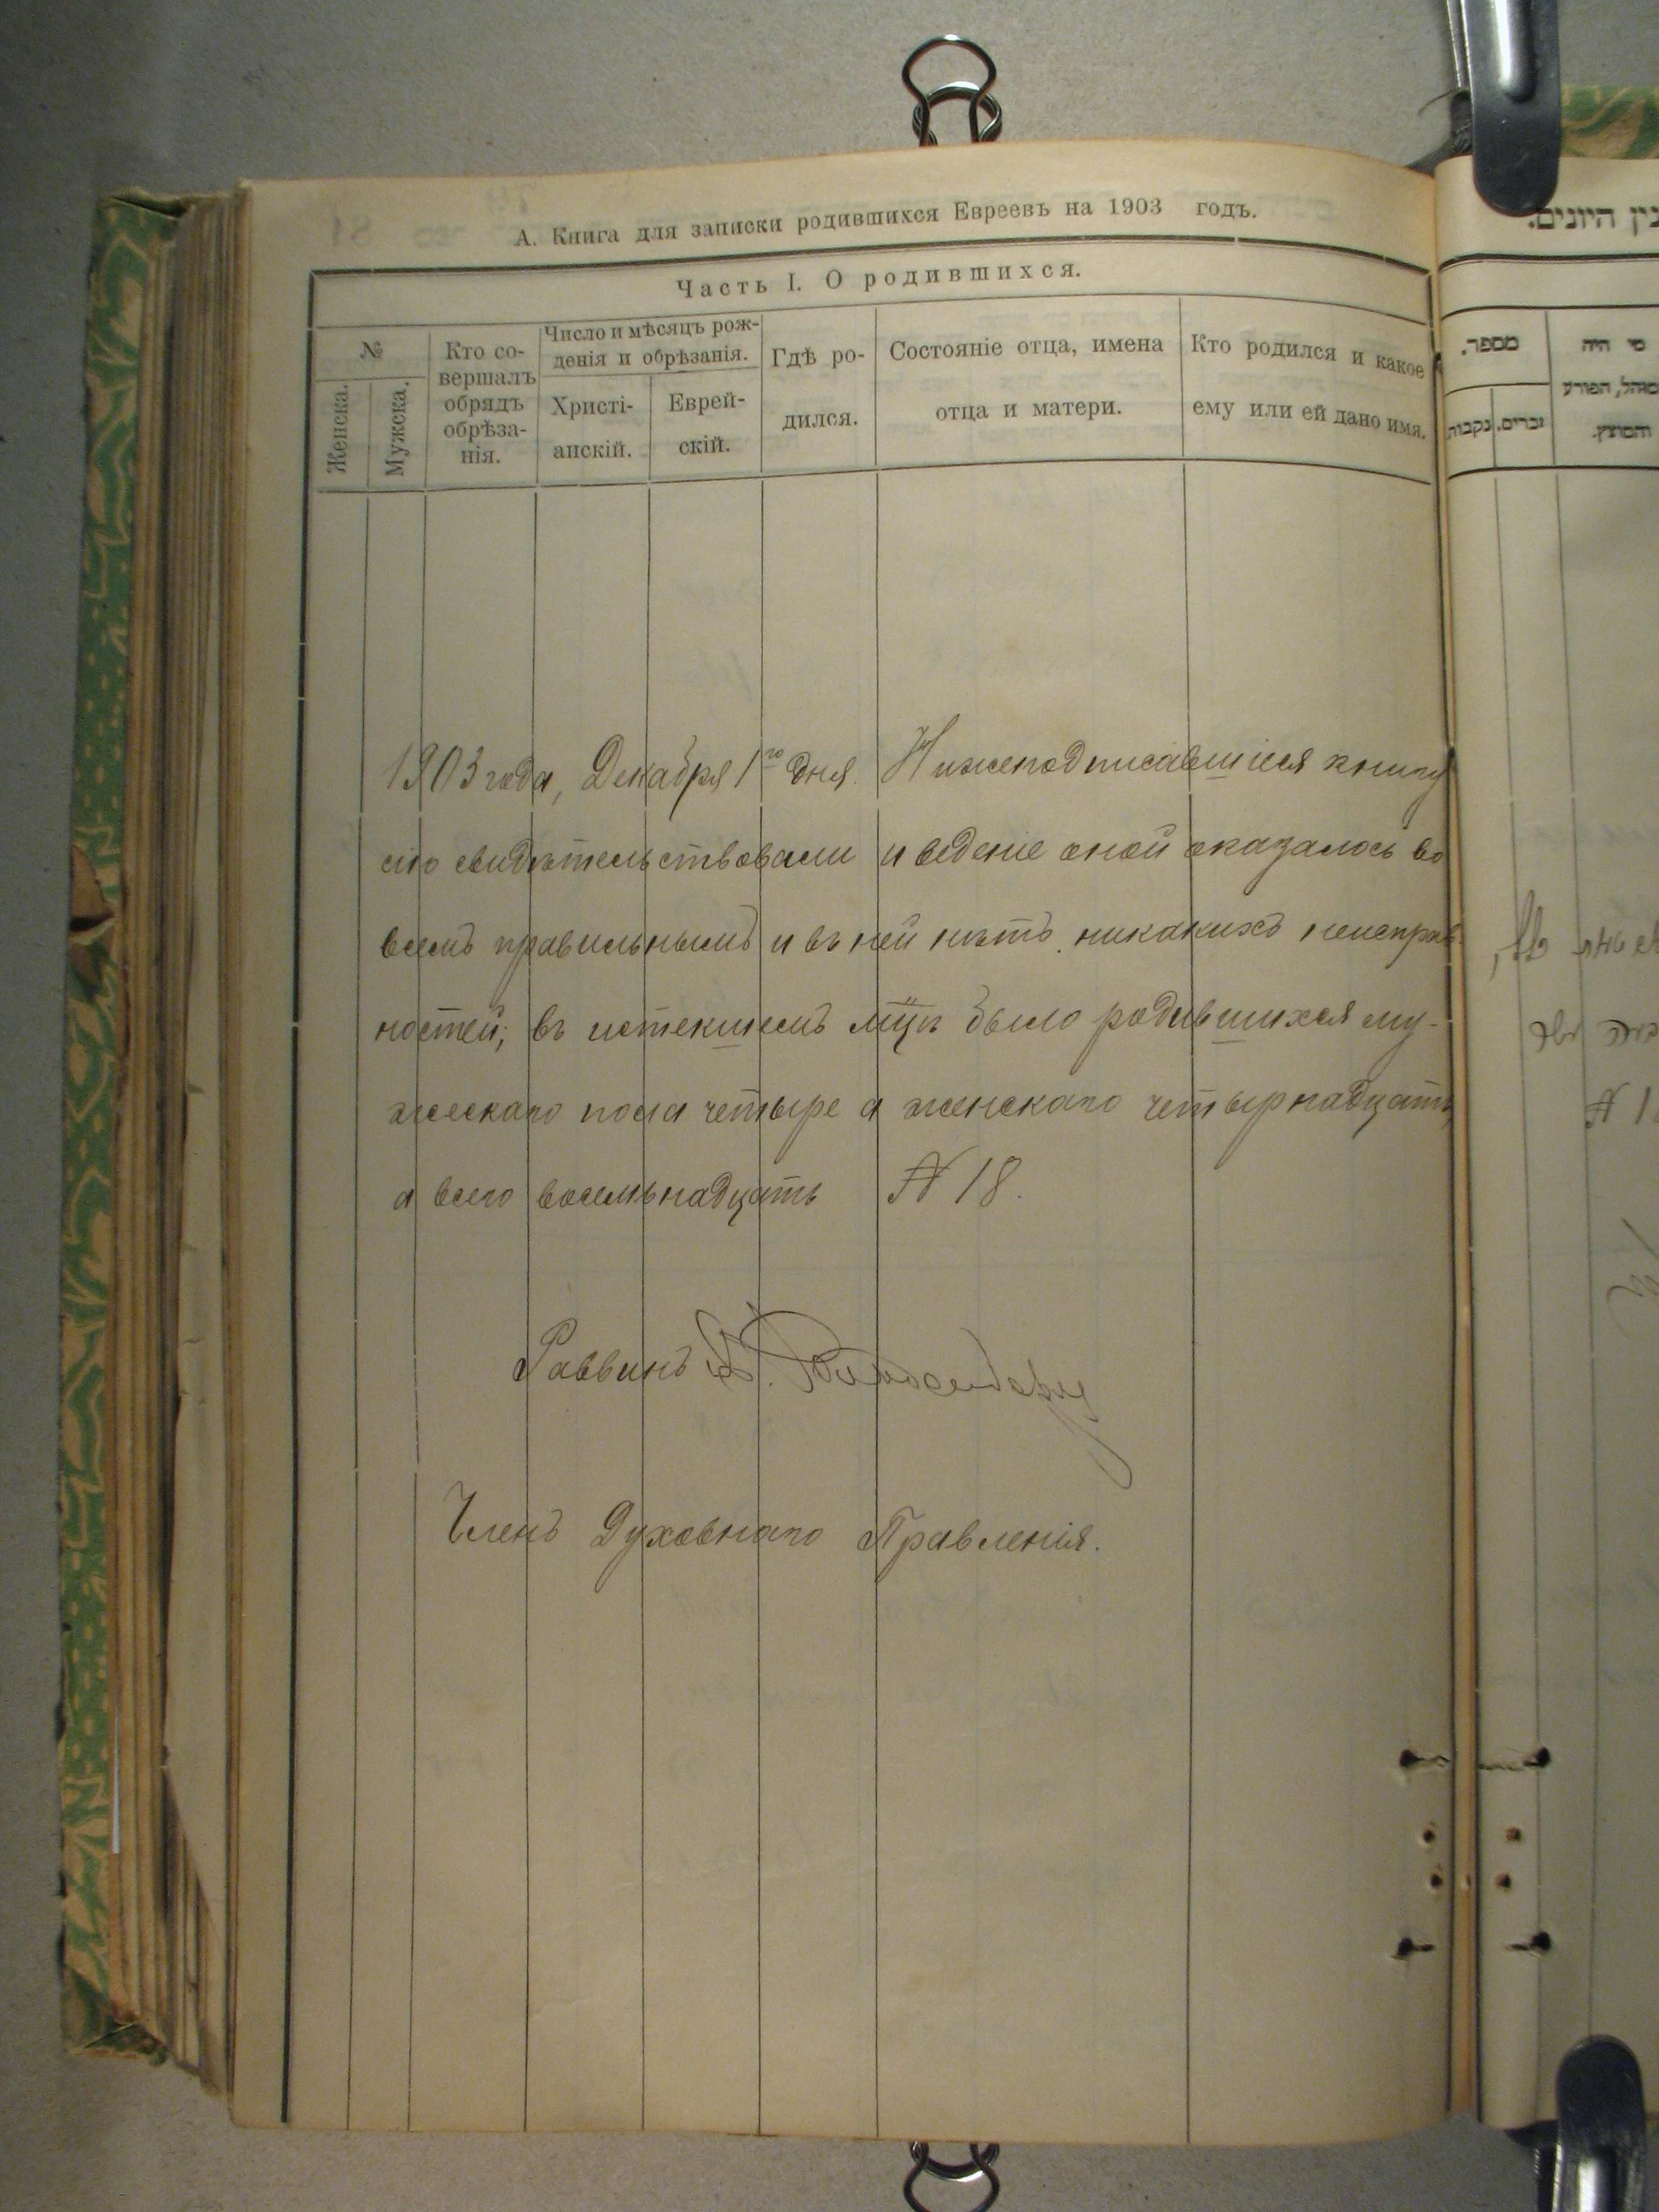 А. Книга для записки родившихся Евреевъ на 1903 годъ.
Часть I. О родившихся.
№
Женска.
Мужска.
Кто со-
вершалъ
обрядъ
обрѣза-
нія.
Число и мѣсяцъ рож-
денія и обрѣзанія.
Христі-
анскій.
Еврей-
скій.
Гдѣ ро-
дился.
Состояніе отца, имена
отца и матери.
Кто родился и какое
ему или ей дано имя.
1903 года, Декабря 1го дня. Нижеподписавшіеся книгу
сію свидѣтельствовали и веденіе оной оказалось во
всемъ правильнымъ и въ ней нѣтъ никакихъ неисправ
ностей; въ истекшемъ мцѣ было родившихся му-
жескаго пола четыре а женскаго четырнадцать,
а всего восемьнадцать № 18.
Раввинъ
Членъ Духовнаго Правленія.
היונים.
מספר.
נקבות
זכרים.
מי היה
מוהל, הפורע
והמוצץ.